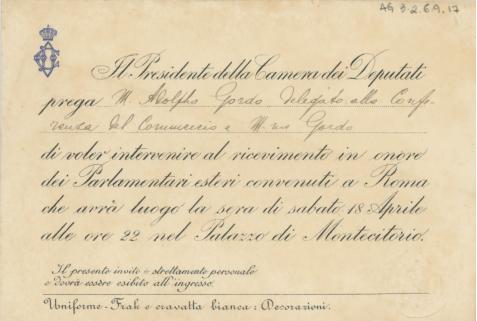 AG 3.2.6.9.17
Il Presidente della Camera dei Deputati
prega M. Adolpho Gordo Delegato alla Confe-
renza del Commercio e M.me Gordo
di voler intervenire al ricevimento in onore
dei Parlamentari esteri convenuti a Roma
che avrà luogo la sera di sabato 18 Aprile
alle ore 22 nel Palazzo di Montecitorio.
Il presente invito è strettamente personale
e dovrà essere esibito all'ingresso.
Uniforme-Frak e cravatta bianca: Decorazioni.